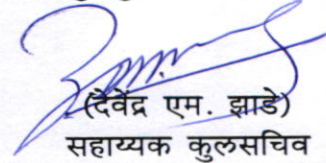 (दैवेंद्र एम. झाडे)
सहाय्यक कुलसचिव